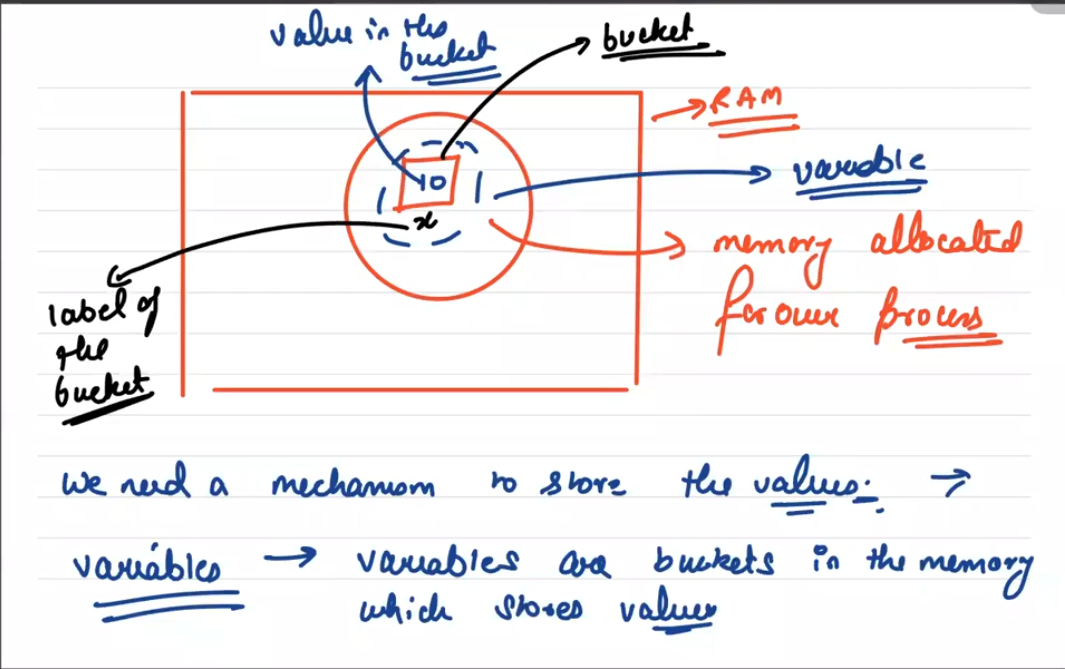 value in the
bucket
bucket
RAM
10
variable
x
memory allocated
for our process
label of
the
bucket
we need a mechanism to store the values. →
variables → variables are buckets in the memory
which stores values